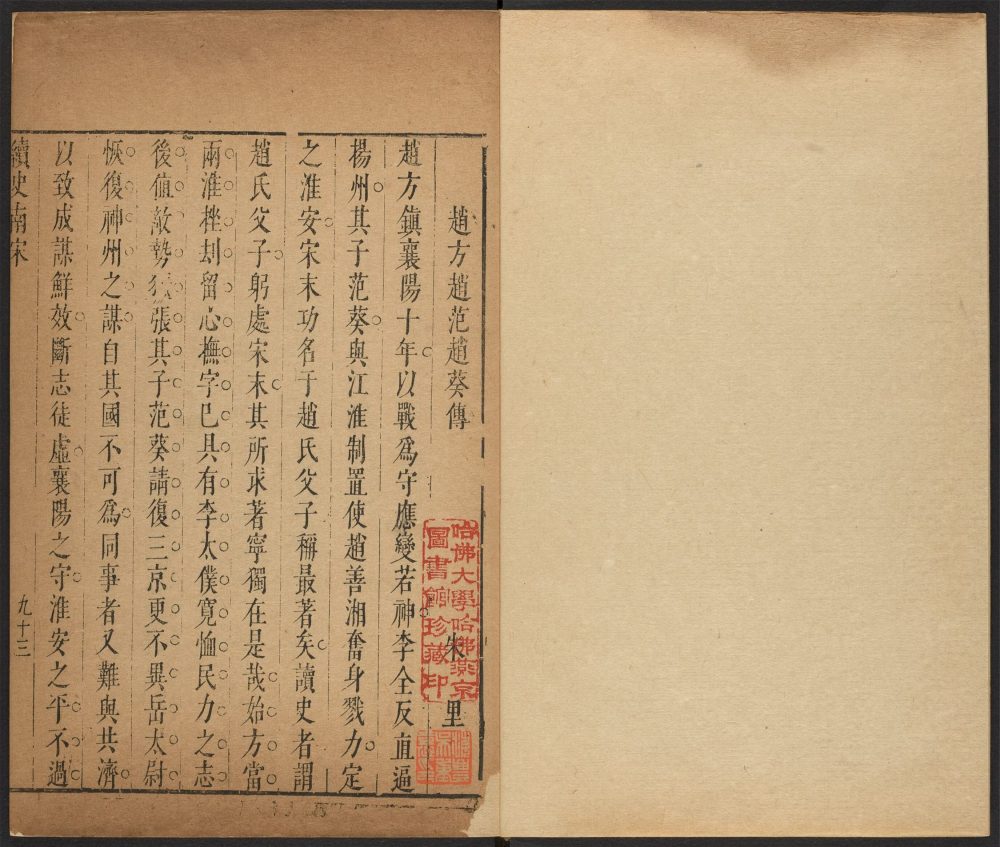 趙方趙范趙葵傳
朱里
趙方鎮襄陽十年以戰爲守應變若神李全反直逼
揚州其子范葵與江淮制置使趙善湘奮身戮力定
之淮安宋末功名于趙氏父子稱最著矣讀史者謂
趙氏父子躬處宋末其所求著寧獨在是哉始方當
兩淮挫刦留心撫字已具有李太僕寬恤民力之志
後值敵勢張其子范葵請復三京更不異岳太尉
恢復神州之謀自其國不可爲同事者又難與共濟
以致成謀鮮效斷志徒虛襄陽之守淮安之平不過
續史南宋
九十三
哈佛大學哈佛燕京
圖書館珍藏印